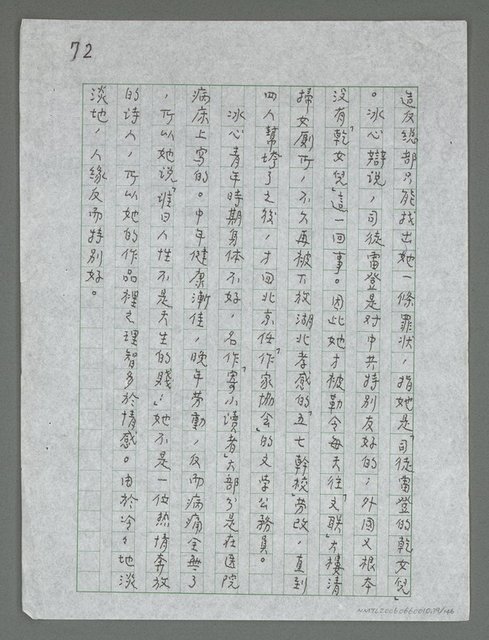 72
造反總部只能找出她一條罪狀，指她是「司徒雷登的乾女兒」
。冰心辯說，司徒雷登是对中共特別友好的；外國又根本
沒有「乾女兒」這一回事。因此她才被勒令每天往「文联」大樓清
掃女厠所，不久再被下放湖北孝感的「五七幹校」劳改，直到
四人幫垮了之後，才回北京任「作家協会」的文学公務員。
冰心青年時期身体不好，名作「寄小读者」大部分是在医院
病床上寫的。中年健康漸佳，晚年劳動，反而病痛全無了
，所以她说「谁曰人性不是天生的賤；」她不是一位热情奔放
的诗人，所以她的作品裡之理智多於情感。由於冷冷地淡
淡地，人緣反而特別好。
NMTL20060660010.79/146